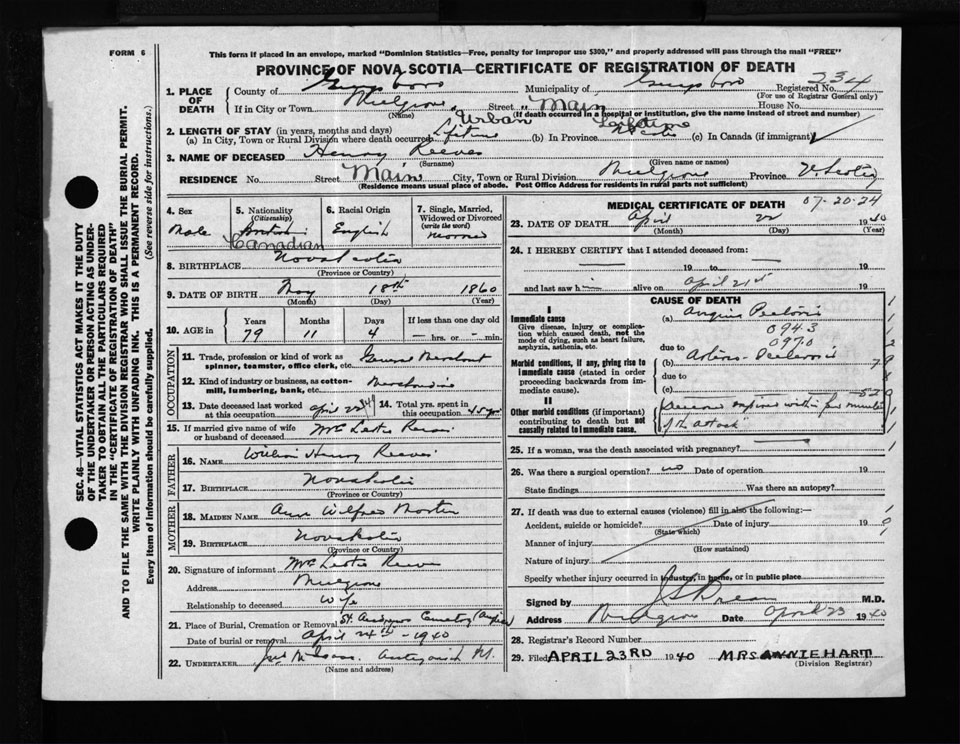 FORM 6
This form if placed in an envelope, marked "Dominion Statistics—Free, penalty for improper use $300," and properly addressed will pass through the mail "FREE"
PROVINCE OF NOVA SCOTIA—CERTIFICATE OF REGISTRATION OF DEATH
234
1. PLACE OF DEATH
County of Guysboro Municipality of Guysboro Registered No.
(For use of Registrar General only)
If in City or Town Mulgrave Street "Main House No.
(Name) (If death occurred in a hospital or institution, give the name instead of street and number)
Urban
2. LENGTH OF STAY (in years, months and days)
(a) In City, Town or Rural Division where death occurred Lifetime (b) In Province Lifetime (c) In Canada (if immigrant)
3. NAME OF DECEASED Henry Reeves
(Surname) (Given name or names)
RESIDENCE No. Street Main City, Town or Rural Division Mulgrave Province N. Scotia
(Residence means usual place of abode. Post Office Address for residents in rural parts not sufficient)
4. Sex Male
5. Nationality (Citizenship) Canadian
6. Racial Origin English
7. Single, Married, Widowed or Divorced (write the word) Married
8. BIRTHPLACE Nova Scotia
(Province or Country)
9. DATE OF BIRTH May 18th 1860
(Month) (Day) (Year)
10. AGE in Years Months Days If less than one day
79 11 4 hrs. or min.
OCCUPATION
11. Trade, profession or kind of work as spinner, teamster, office clerk, etc. General Merchant
12. Kind of industry or business, as cotton-mill, lumbering, bank, etc.
13. Date deceased last worked at this occupation April 22
14. Total yrs. spent in this occupation 45 yrs
15. If married give name of wife or husband of deceased
FATHER
16. Name William Henry Reeves
17. Birthplace Nova Scotia
(Province or Country)
MOTHER
18. Maiden Name Ann
19. Birthplace Nova Scotia
(Province or Country)
20. Signature of informant
Address Mulgrave
Relationship to deceased Wife
21. Place of Burial, Cremation or Removal St. Andrews Cemetery
Date of burial or removal April 24th - 1940
22. UNDERTAKER Antigonish
(Name and address)
MEDICAL CERTIFICATE OF DEATH 07-20-24
23. DATE OF DEATH April 22 1940
(Month) (Day) (Year)
24. I HEREBY CERTIFY that I attended deceased from:
19 to 19
and last saw h alive on April 21st 19
CAUSE OF DEATH
I
Immediate cause (a) Angina Pectoris
Give disease, injury or complication which caused death, not the mode of dying, such as heart failure, asphyxia, asthenia, etc.
0943
0970
due to
Morbid conditions, if any, giving rise to immediate cause (stated in order proceeding backwards from immediate cause).
(b)
due to
(c)
II
Other morbid conditions (if important) contributing to death but not causally related to immediate cause.
of the attack
25. If a woman, was the death associated with pregnancy?
26. Was there a surgical operation? no Date of operation 19
State findings Was there an autopsy?
27. If death was due to external causes (violence) fill in also the following:—
Accident, suicide or homicide? Date of injury 19
(State which)
Manner of injury
(How sustained)
Nature of injury
Specify whether injury occurred in industry, in home, or in public place
Signed by M.D.
Address Mulgrave Date April 23 1940
28. Registrar's Record Number
29. Filed APRIL 23RD 1940 MRS ANNIE HART
(Division Registrar)
SEC. 46—VITAL STATISTICS ACT MAKES IT THE DUTY
OF THE UNDERTAKER OR PERSON ACTING AS UNDER-
TAKER TO OBTAIN ALL THE PARTICULARS REQUIRED
IN THE "CERTIFICATE OF REGISTRATION OF DEATH"
AND TO FILE THE SAME WITH THE DIVISION REGISTRAR WHO SHALL ISSUE THE BURIAL PERMIT.
WRITE PLAINLY WITH UNFADING INK. THIS IS A PERMANENT RECORD.
Every item of information should be carefully supplied. (See reverse side for instructions.)